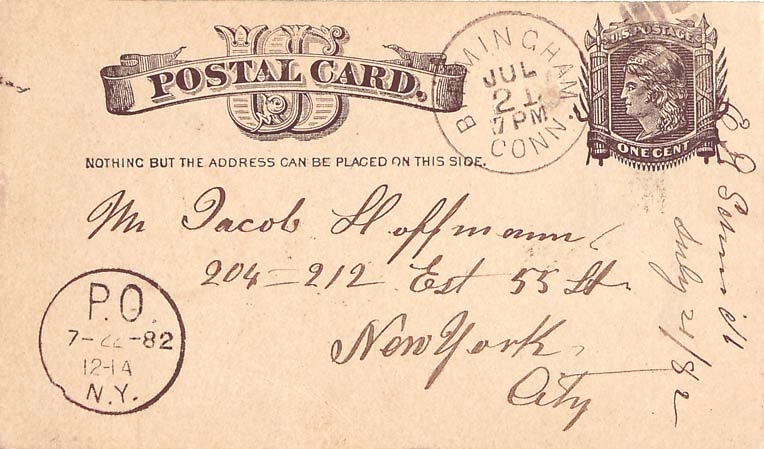 US
POSTAL CARD.
NOTHING BUT THE ADDRESS CAN BE PLACED ON THIS SIDE.
BIRMINGHAM
JUL
21
7 PM
CONN.
U.S. POSTAGE
ONE CENT
Mr Jacob Hoffmann
204=212 Est 55 St.
New York,
City
P.O.
7-22-82
12-1A
N.Y.
July 21/82